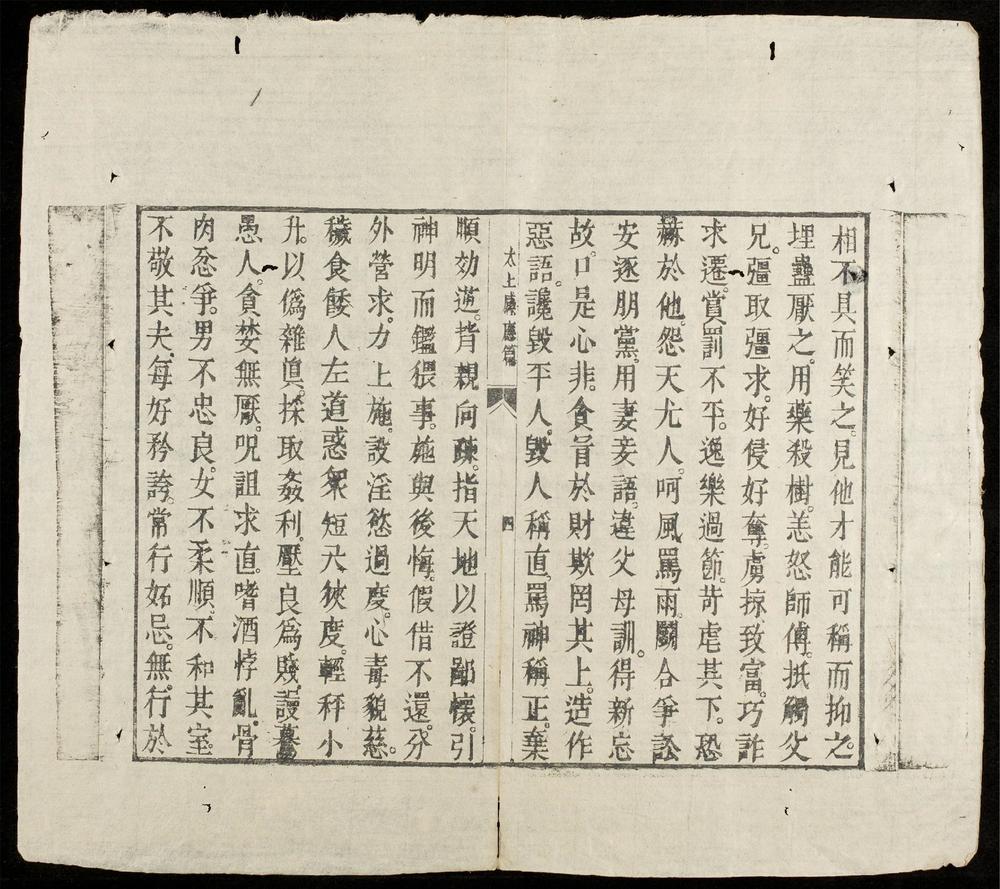 相不具而笑之。見他才能可稱而抑之。
埋蠱厭之。用藥殺樹。恚怒師傅。抵觸父
兄。彊取彊求。好侵好奪。虜掠致富。巧詐
求遷。賞罰不平。逸樂過節。苛虐其下。恐
赫於他。怨天尤人。呵風罵雨。鬬合爭訟
安逐朋黨。用妻妾語。違父母訓。得新忘
故。口是心非。貪冒於財。欺罔其上。造作
惡語。讒毀平人。毀人稱直。罵神稱正。棄
太上感應篇
四
順効逆。背親向疎。指天地以證鄙懷。引
神明而鑑猥事。施與後悔。假借不還。分
外營求。力上施設。淫慾過度。心毒貌慈。
穢食餧人。左道惑衆。短尺狹度。輕秤小
升。以僞雜眞。採取姦利。壓良爲賤。謾驀
愚人。貪婪無厭。呪詛求直。嗜酒悖亂。骨
肉忿爭。男不忠良。女不柔順。不和其室。
不敬其夫。每好矜誇。常行妬忌。無行於